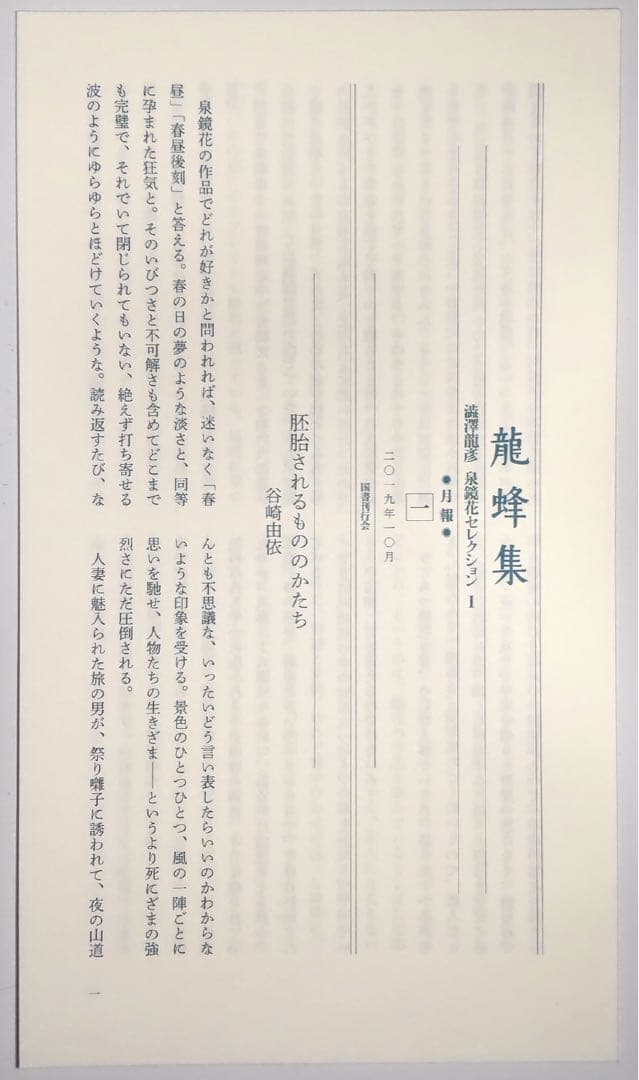 龍蜂集
澁澤龍彦 泉鏡花セレクション Ⅰ
●月報●
一
二〇一九年一〇月
国書刊行会
胚胎されるもののかたち
谷崎由依
泉鏡花の作品でどれが好きかと問われれば、迷いなく「春
昼」「春昼後刻」と答える。春の日の夢のような淡さと、同等
に孕まれた狂気と。そのいびつさと不可解さも含めてどこまで
も完璧で、それでいて閉じられてもいない、絶えず打ち寄せる
波のようにゆらゆらとほどけていくような。読み返すたび、な
んとも不思議な、いったいどう言い表したらいいのかわからな
いような印象を受ける。景色のひとつひとつ、風の一陣ごとに
思いを馳せ、人物たちの生きざま――というより死にざまの強
烈さにただ圧倒される。
人妻に魅入られた旅の男が、祭り囃子に誘われて、夜の山道
一